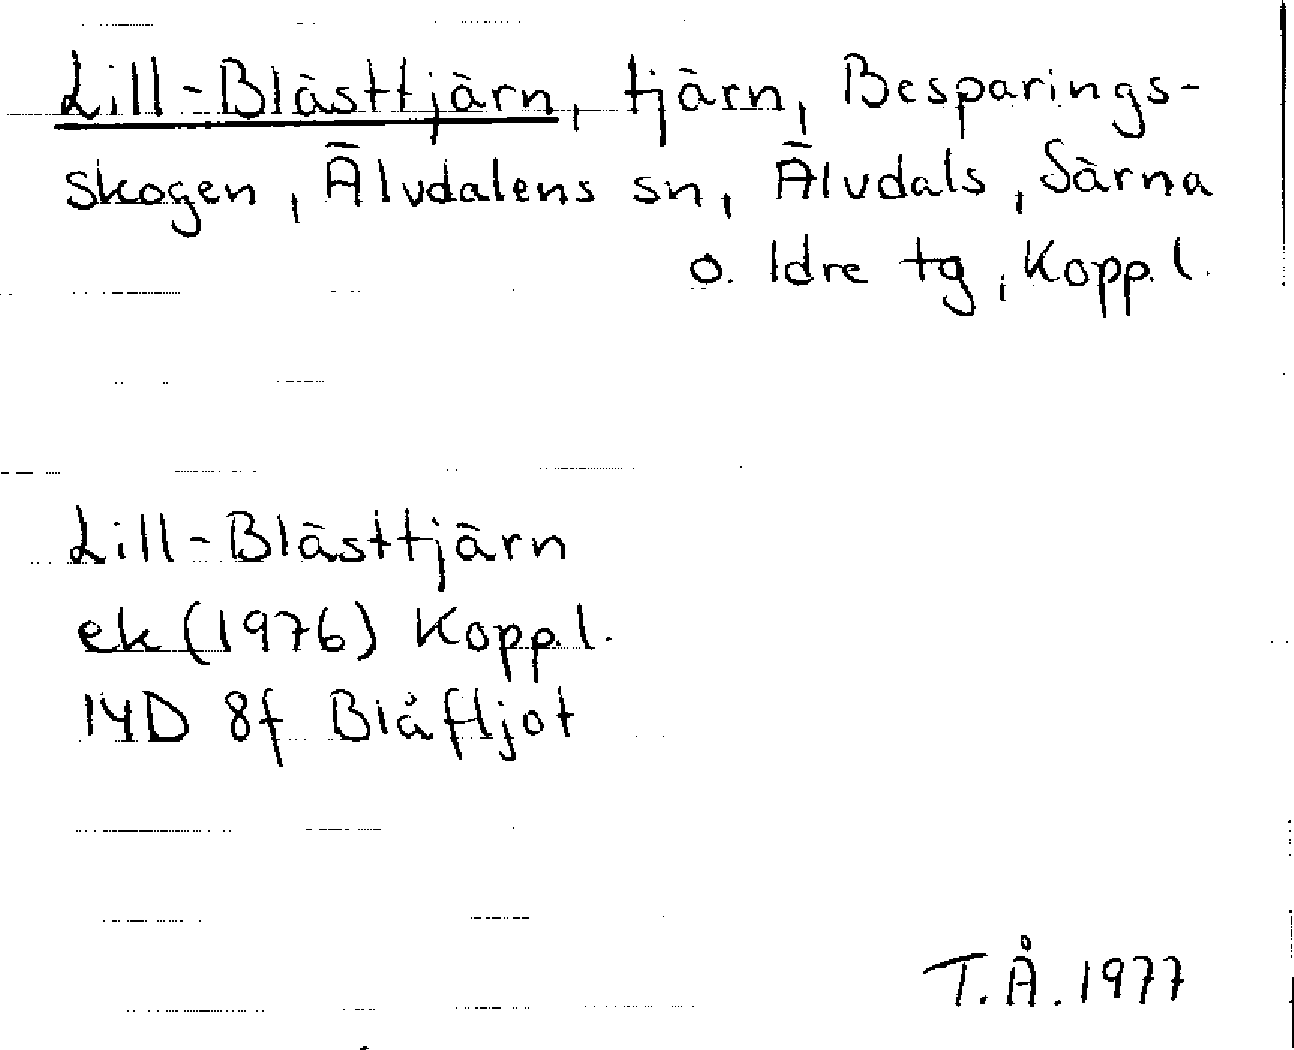 Lill-Blästtjärn, tjärn, Besparings-
skogen, Älvdalens sn, Älvdals, Särna
o. Idre tg, Koppl.
Lill-Blästtjärn
ek (1976) Koppl.
14D 8f Blåfljot
T.Å. 1977